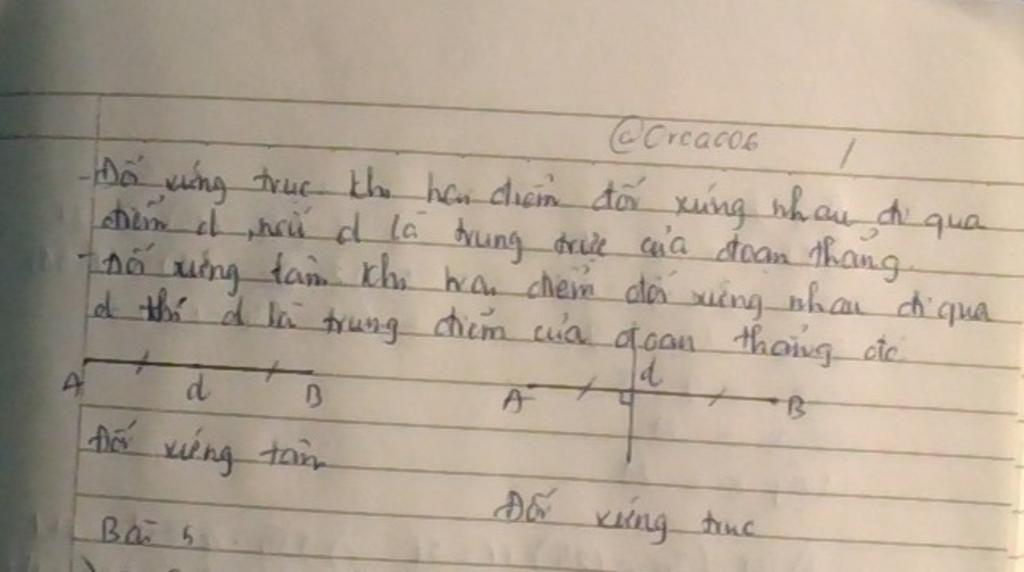 @Crcacob
- Đối xứng trục khi hai điểm đối xứng nhau đi qua
điểm d, nếu d là trung trực của đoạn thẳng.
- Đối xứng tâm khi hai điểm đối xứng nhau đi qua
d thì d là trung điểm của đoạn thẳng đó
A d B A d B
Đối xứng tâm
Đối xứng trục
Bài 5